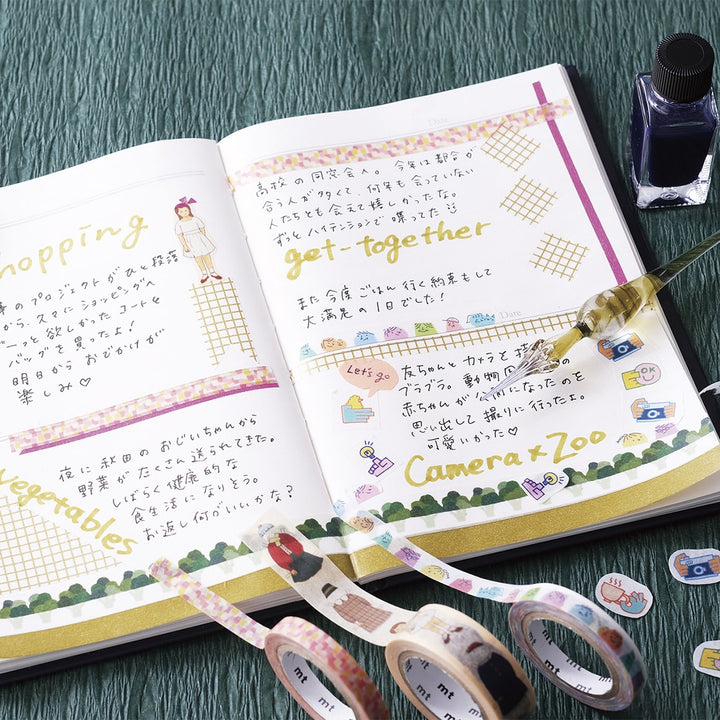 hopping
のプロジェクトがひと段落
から、久々にショッピングへ
ーっと欲しかったコートと
バッグを買ったよ!
明日から おでかけが
楽しみ♡
夜に秋田のおじいちゃんから
野菜がたくさん送られてきた。
しばらく健康的な
食生活になりそう。
お返し何がいいかな?
Vegetables
Date
高校の同窓会へ。今年は都合が
合う人が多くて、何年も会っていない
人たちとも会えて嬉しかったな。
ずっとハイテンションで喋ってた
get-together
また今度ごはん行く約束もして
大満足の1日でした!
Date
Let's go
友ちゃんとカメラを持
ブラブラ。動物園の
赤ちゃんが公開になったのを
思い出して撮りに行ったよ。
可愛いかった♡
Camera×Zoo
OK
mt
mt
mt